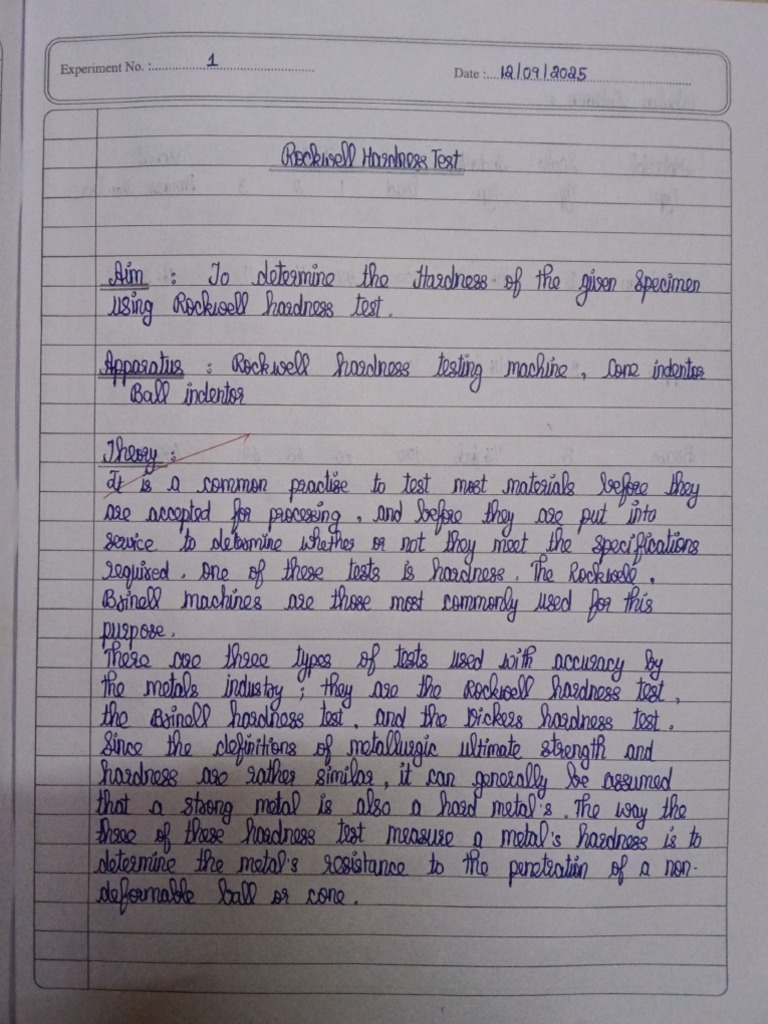 Experiment No. : 1 Date : 12/09/2025
Rockwell Hardness Test
Aim : To determine the Hardness of the given specimen
using Rockwell hardness test.
Apparatus : Rockwell hardness testing machine, Cone indentor
Ball indentor
Theory :
It is a common practise to test most materials before they
are accepted for processing, and before they are put into
service to determine whether or not they meet the specifications
required. One of these tests is hardness. The Rockwell,
Brinell machines are those most commonly used for this
purpose.
There are three types of tests used with accuracy by
the metals industry; they are the Rockwell hardness test,
the Brinell hardness test, and the Vickers hardness test.
Since the definitions of metallurgic ultimate strength and
hardness are rather similar, it can generally be assumed
that a strong metal is also a hard metal's. The way the
three of these hardness test measure a metal's hardness is to
determine the metal's resistance to the penetration of a non-
deformable ball or cone.